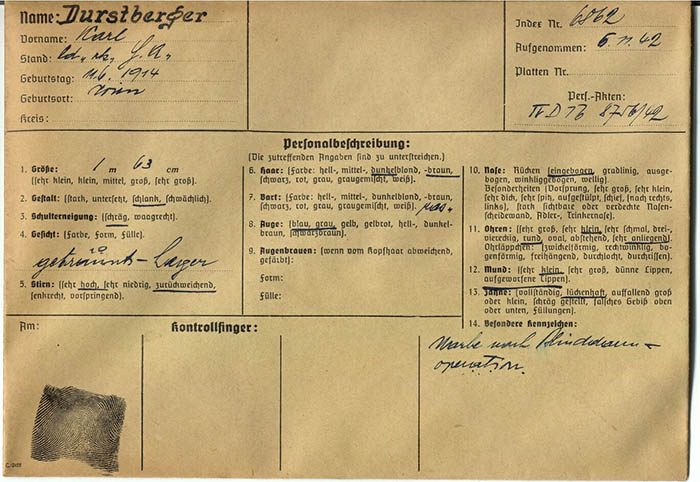 Name: Durstberger
Vorname: Karl
Stand: ld., rk., H.A.
Geburtstag: 11.6. 1914
Geburtsort: Wien
Kreis:
Index Nr. 6862
Aufgenommen: 6. 11. 42
Platten Nr.
Pers.-Akten:
IV D 1b 8756/42
Personalbeschreibung:
(Die zutreffenden Angaben sind zu unterstreichen.)
1. Größe: 1 m 63 cm
(sehr klein, klein, mittel, groß, sehr groß).
2. Gestalt: (stark, untersetzt, schlank, schwächlich).
3. Schulterneigung: (schräg, waagrecht).
4. Gesicht: (Farbe, Form, Fülle).
gebräunt-
5. Stirn: (sehr hoch, sehr niedrig, zurückweichend,
senkrecht, vorspringend).
6. Haar: (Farbe: hell-, mittel-, dunkelblond, -braun,
schwarz, rot, grau, graugemischt, weiß).
7. Bart: (Farbe: hell-, mittel-, dunkelblond, -braun,
schwarz, rot, grau, graugemischt, weiß).
8. Auge: (blau, grau, gelb, gelbrot, hell-, dunkel-
braun, schwarzbraun).
9. Augenbrauen: (wenn vom Kopfhaar abweichend,
gefärbt):
Form:
Fülle:
10. Nase: Rücken (eingebogen, gradlinig, ausge-
bogen, winkliggebogen, wellig).
Besonderheiten (Vorsprung, sehr groß, sehr klein,
sehr dick, sehr spitz, aufgestülpt, schief, [nach rechts,
links], stark sichtbare oder verdeckte Nasen-
scheidewand, Adler-, Trinkernase).
11. Ohren: (sehr groß, sehr klein, sehr schmal, drei-
viereckig, rund, oval, abstehend, sehr anliegend)
Ohrläppchen: (zwickelförmig, rechtwinklig, bo-
genförmig, freihängend, durchlocht, durchrissen).
12. Mund: (sehr klein, sehr groß, dünne Lippen,
aufgeworfene Lippen).
13. Zähne: (vollständig, lückenhaft, auffallend groß
oder klein, schräg gestellt, falsches Gebiß oben
oder unten, Füllungen).
14. Besondere Kennzeichen:
Narbe nach Blinddarm-
operation.
Am:
Kontrollfinger: